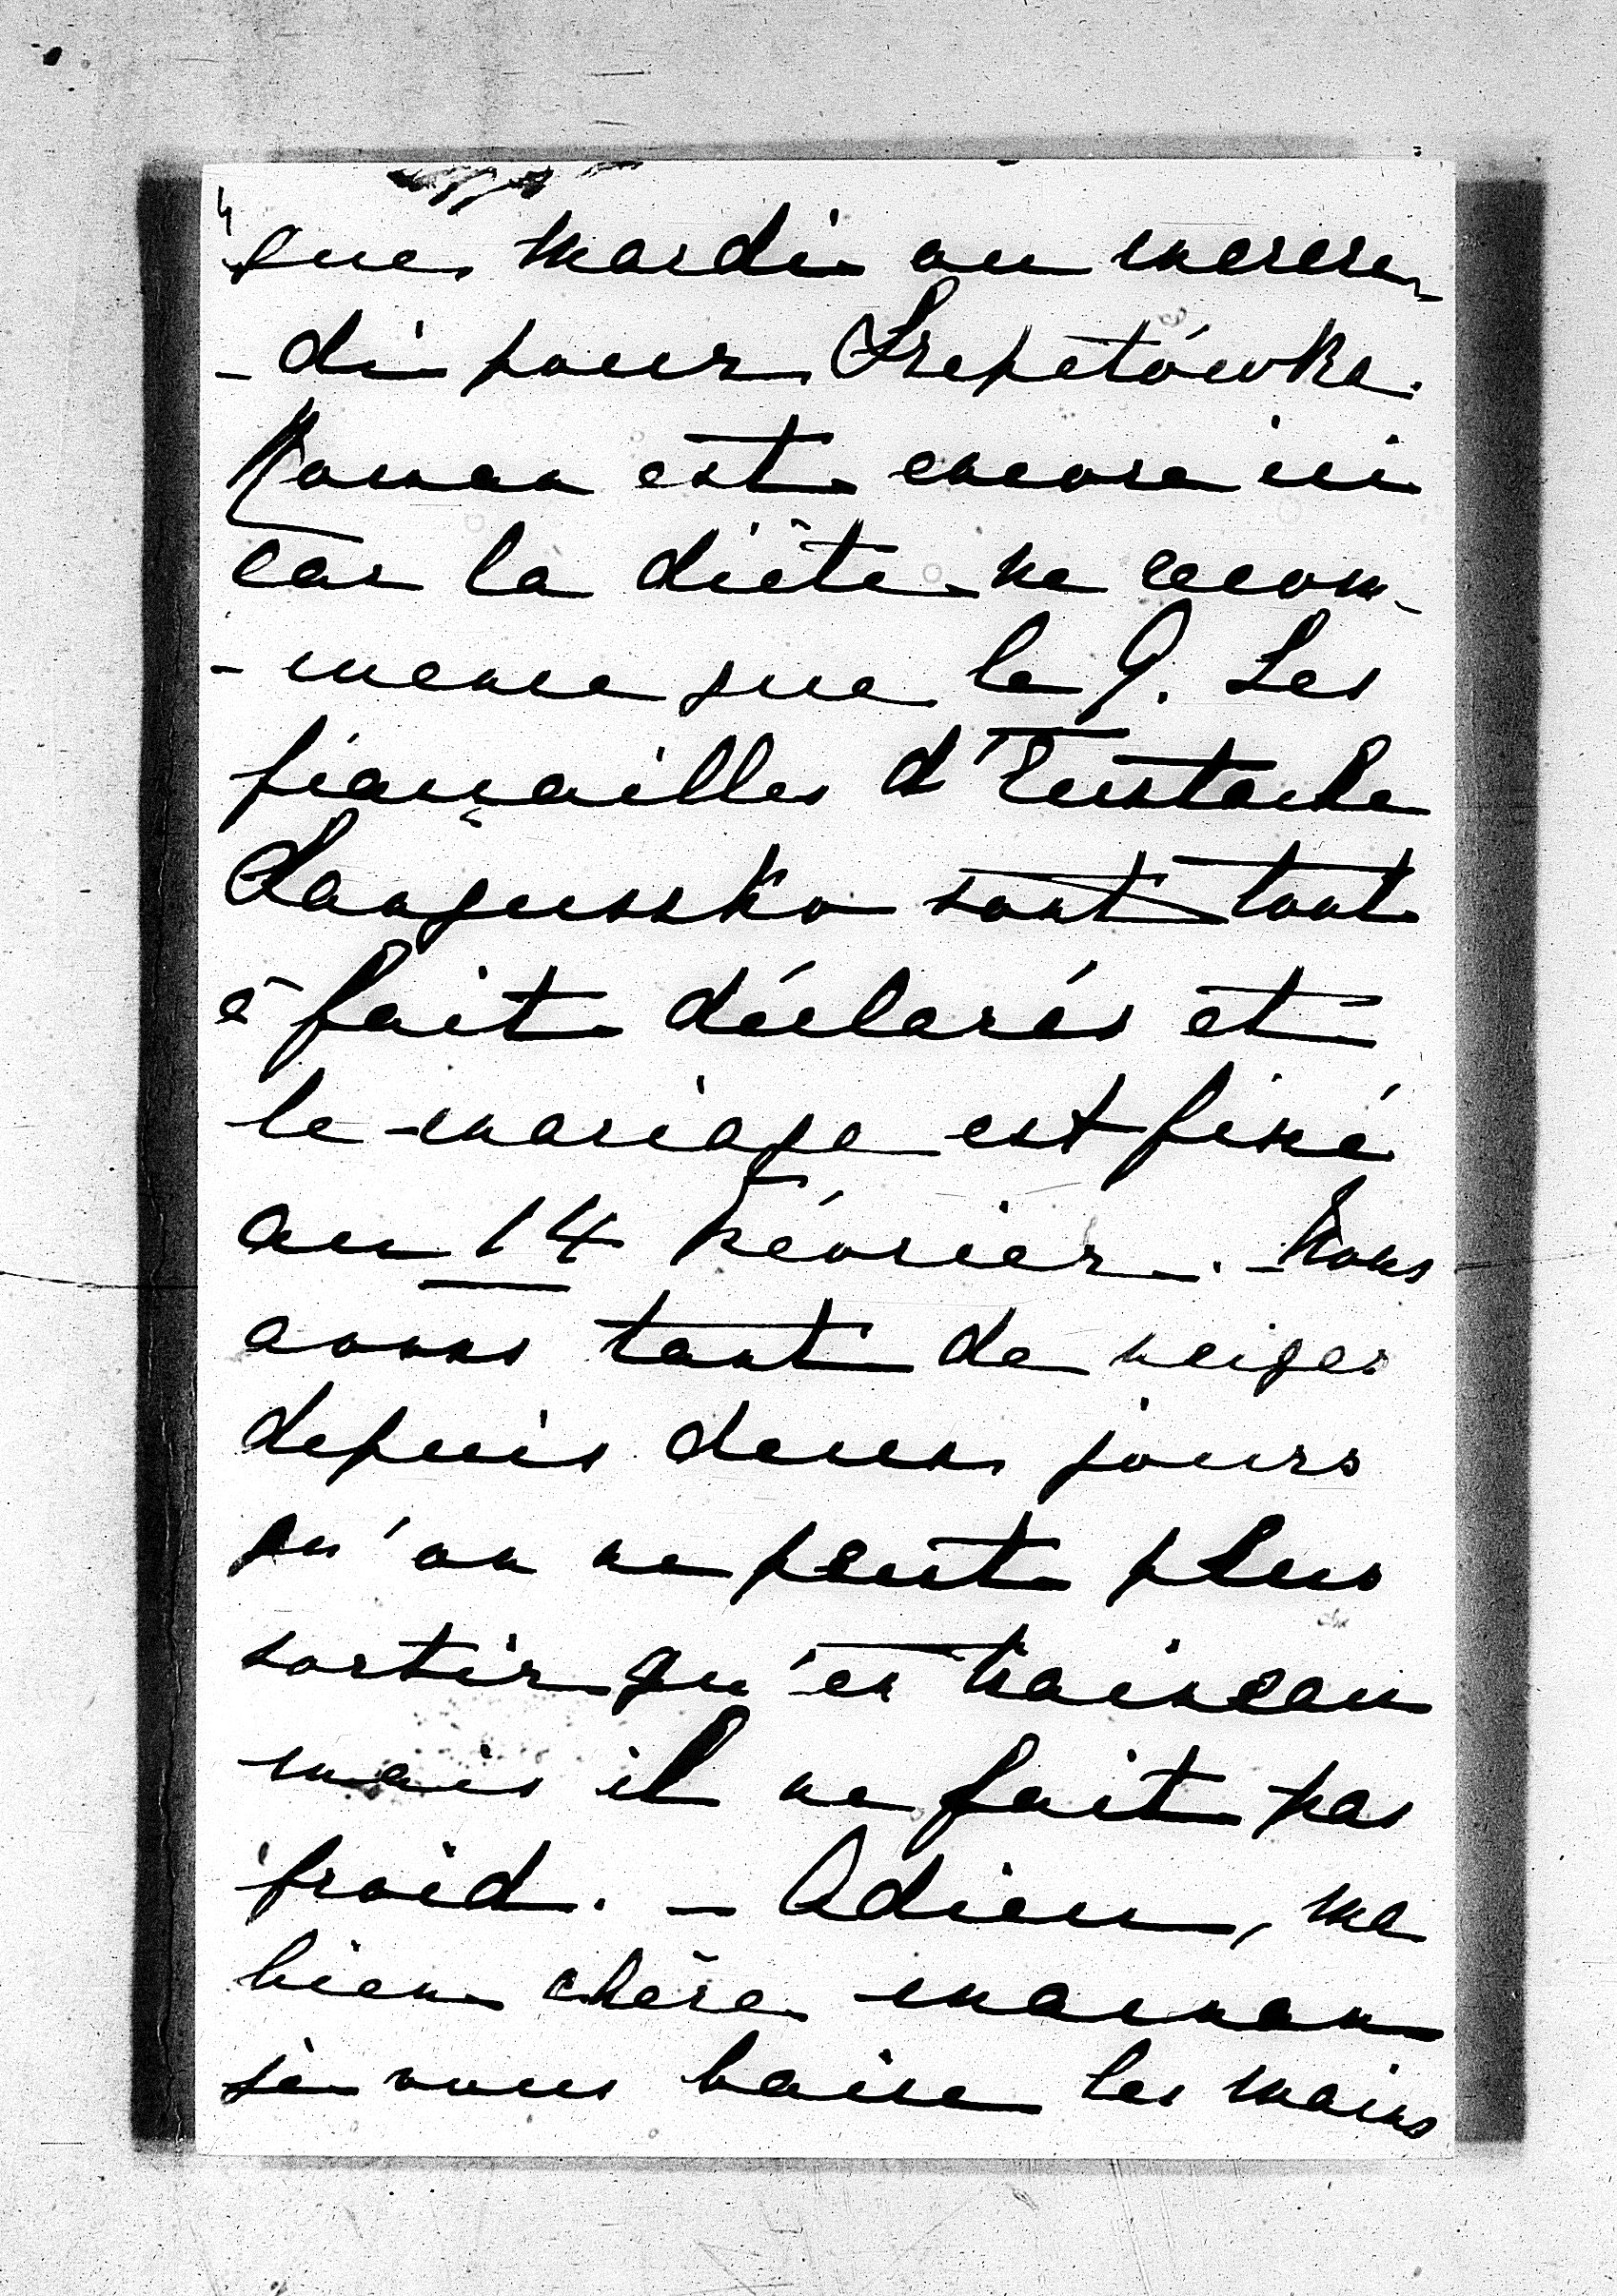 4
que mardi ou mercre-
-di pour Szepetówka.
Roman est encore ici
car la diète ne recom-
-mence que le 9. Les
fiançailles d'Eustache
Sanguszko sont tout
à fait déclarés et
le mariage est fixé
au 14 Février. - Nous
avons tant de neiges
depuis deux jours
qu'on ne peut plus
sortir qu'en traineau
mais il ne fait pas
froid. - Adieu, ma
bien chère maman
je vous baise les mains